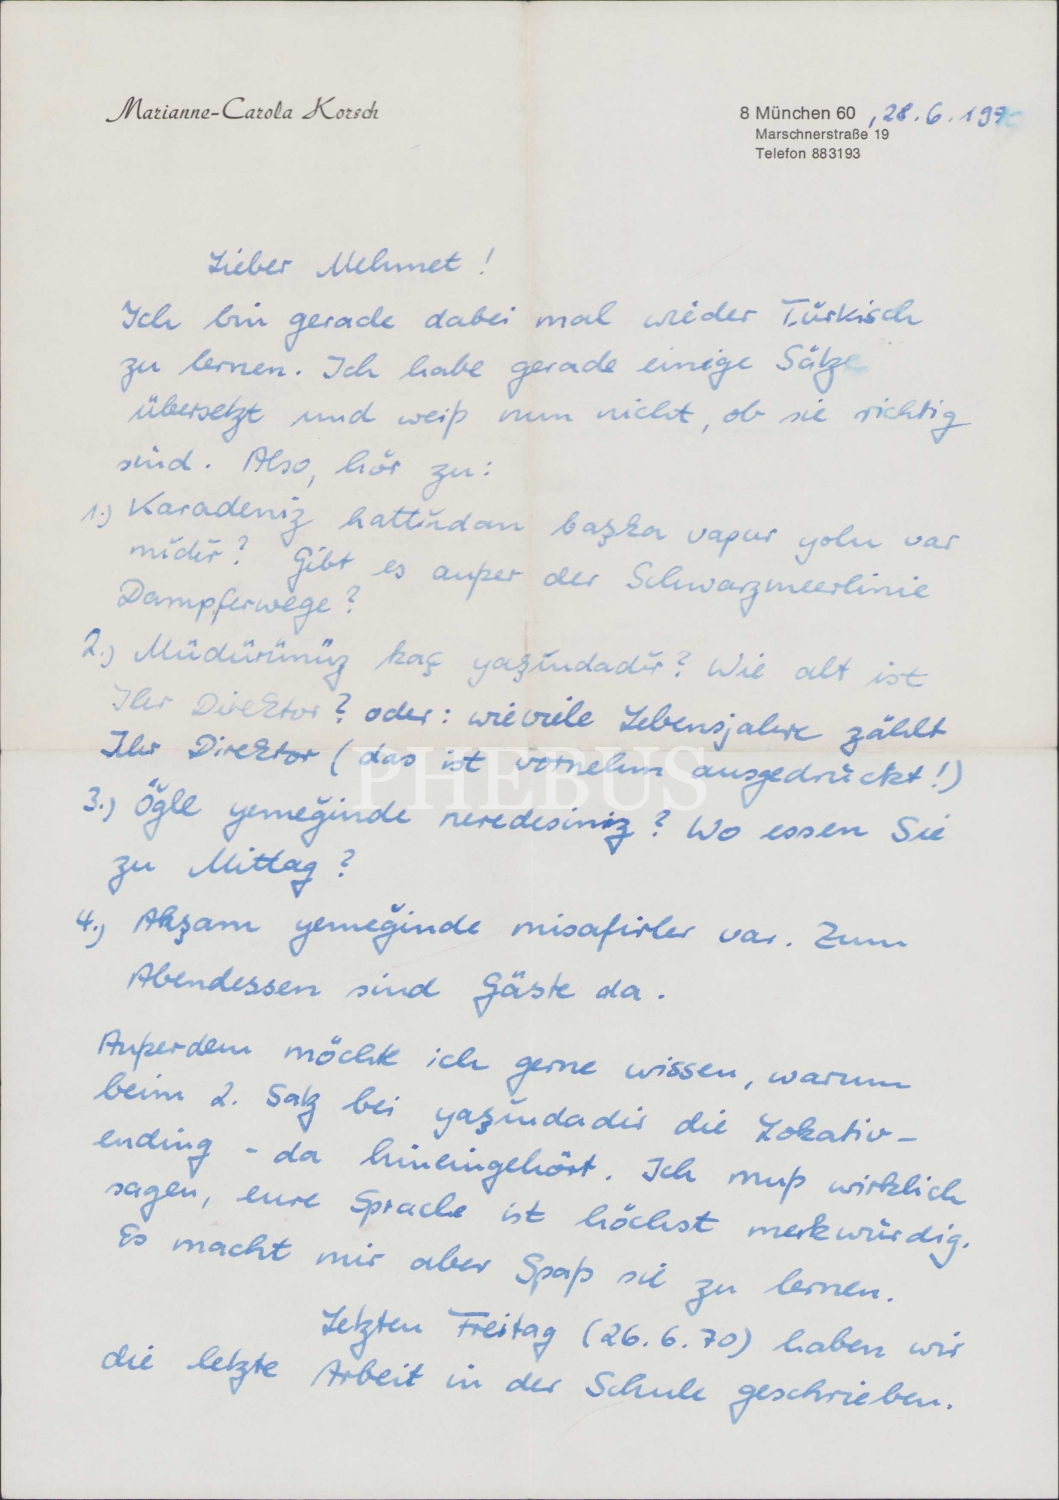 Marianne-Carola Korsch
8 München 60, 28.6.1970
Marschnerstraße 19
Telefon 883193
Lieber Mehmet!
Ich bin gerade dabei mal wieder Türkisch
zu lernen. Ich habe gerade einige Sätze
übersetzt und weiß nun nicht, ob sie richtig
sind. Also, hör zu:
1.) Karadeniz hattından başka vapur yolu var
mıdır? Gibt es außer der Schwarzmeerlinie
Dampferwege?
2.) Müdürünüz kaç yaşındadır? Wie alt ist
Ihr Direktor? oder: wieviele Lebensjahre zählt
Ihr Direktor (das ist vornehm ausgedrückt!)
PHEBUS
3.) Öğle yemeğinde neredesiniz? Wo essen Sie
zu Mittag?
4.) Akşam yemeğinde misafirler var. Zum
Abendessen sind Gäste da.
Außerdem möchte ich gerne wissen, warum
beim 2. Satz bei yaşındadır die Lokativ-
ending -da hineingehört. Ich muß wirklich
sagen, eure Sprache ist höchst merkwürdig.
Es macht mir aber Spaß sie zu lernen.
Letzten Freitag (26.6.70) haben wir
die letzte Arbeit in der Schule geschrieben.